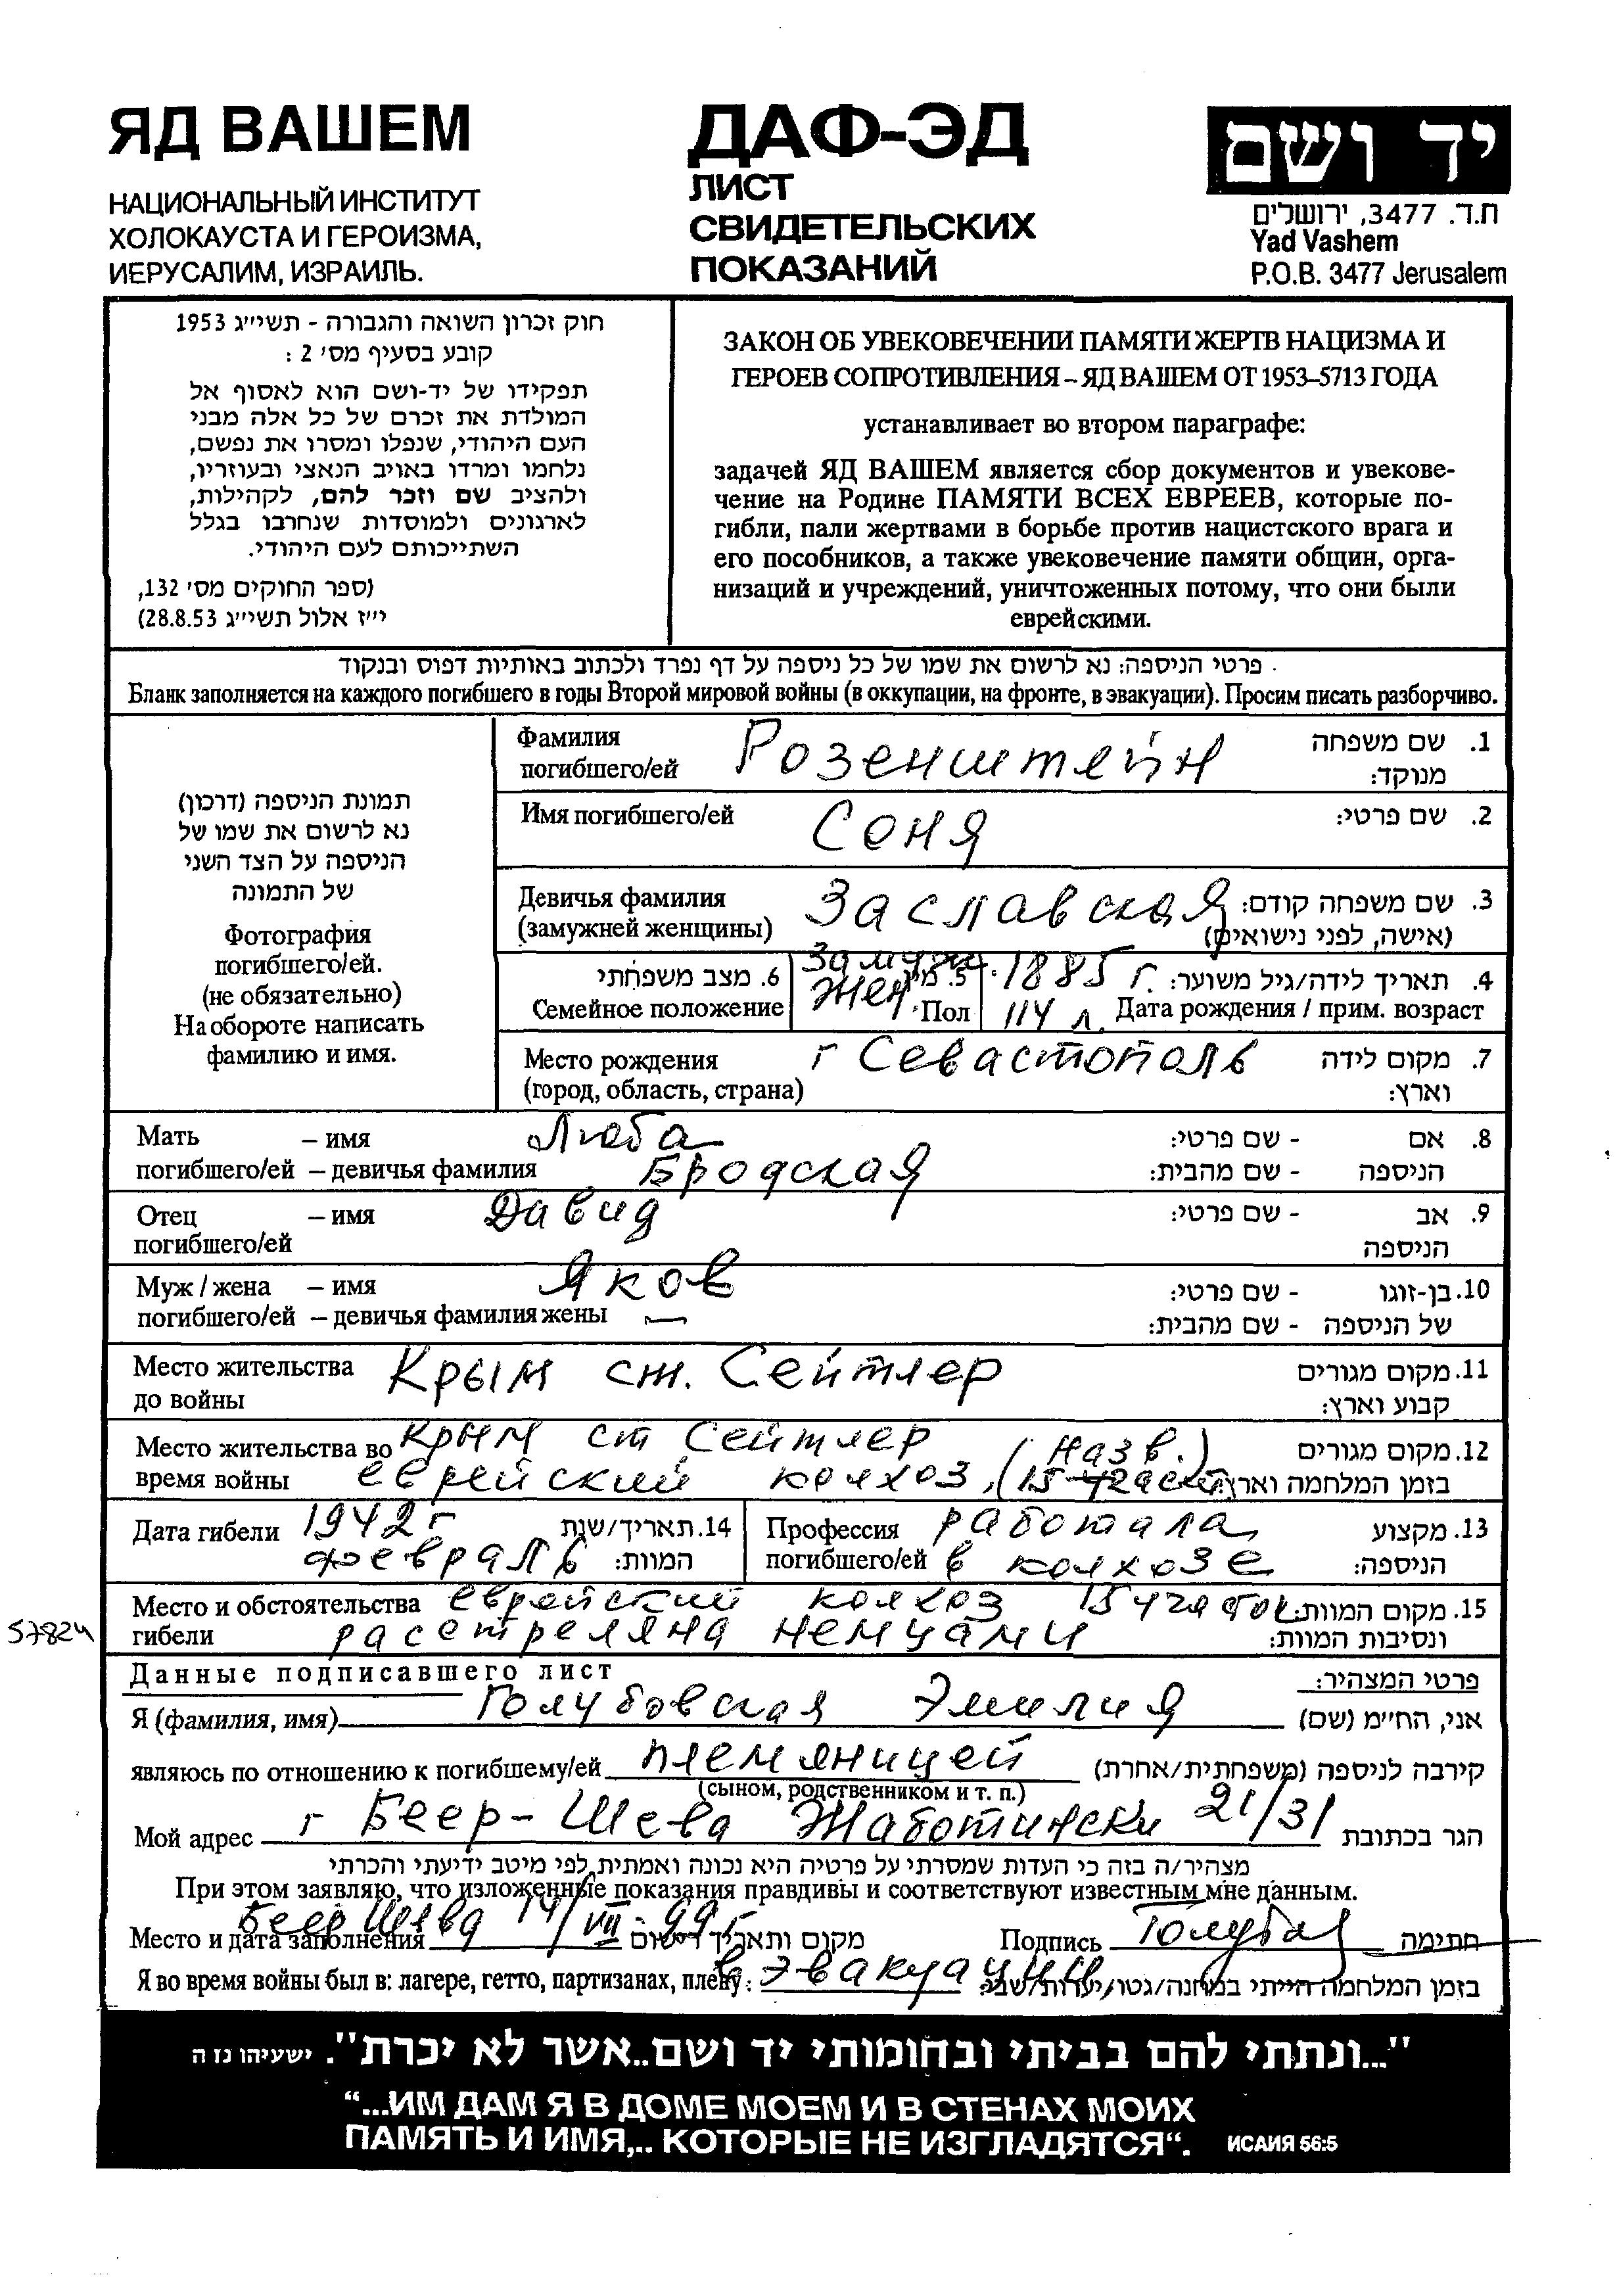 ЯД ВАШЕМ
НАЦИОНАЛЬНЫЙ ИНСТИТУТ
ХОЛОКАУСТА И ГЕРОИЗМА,
ИЕРУСАЛИМ, ИЗРАИЛЬ.
ДАФ-ЭД
ЛИСТ
СВИДЕТЕЛЬСКИХ
ПОКАЗАНИЙ
יד ושם
ת.ד. 3477, ירושלים
Yad Vashem
P.O.B. 3477 Jerusalem
חוק זכרון השואה והגבורה - תשי״ג 1953
קובע בסעיף מס׳ 2 :
תפקידו של יד-ושם הוא לאסוף אל
המולדת את זכרם של כל אלה מבני
העם היהודי, שנפלו ומסרו את נפשם,
נלחמו ומרדו באויב הנאצי ובעוזריו,
ולהציב שם וזכר להם, לקהילות,
לארגונים ולמוסדות שנחרבו בגלל
השתייכותם לעם היהודי.
(ספר החוקים מס׳ 132,
י״ז אלול תשי״ג 28.8.53)
ЗАКОН ОБ УВЕКОВЕЧЕНИИ ПАМЯТИ ЖЕРТВ НАЦИЗМА И
ГЕРОЕВ СОПРОТИВЛЕНИЯ – ЯД ВАШЕМ ОТ 1953–5713 ГОДА
устанавливает во втором параграфе:
задачей ЯД ВАШЕМ является сбор документов и увекове-
чение на Родине ПАМЯТИ ВСЕХ ЕВРЕЕВ, которые по-
гибли, пали жертвами в борьбе против нацистского врага и
его пособников, а также увековечение памяти общин, орга-
низаций и учреждений, уничтоженных потому, что они были
еврейскими.
פרטי הניספה: נא לרשום את שמו של כל ניספה על דף נפרד ולכתוב באותיות דפוס ובנקוד
Бланк заполняется на каждого погибшего в годы Второй мировой войны (в оккупации, на фронте, в эвакуации). Просим писать разборчиво.
תמונת הניספה (דרכון)
נא לרשום את שמו של
הניספה על הצד השני
של התמונה
Фотография
погибшего/ей.
(не обязательно)
На обороте написать
фамилию и имя.
Фамилия Розенштейн 1. שם משפחה
погибшего/ей מנוקד:
Имя погибшего/ей Соня 2. שם פרטי:
Девичья фамилия Заславская 3. שם משפחה קודם:
(замужней женщины) (אישה, לפני נישואים)
6. מצב משפחתי замужн 5. מין 1885 г. 4. תאריך לידה/גיל משוער:
Семейное положение жен Пол 114 л. Дата рождения / прим. возраст
Место рождения г Севастополь 7. מקום לידה
(город, область, страна) וארץ:
Мать – имя Люба 8. אם - שם פרטי:
погибшего/ей – девичья фамилия Бродская הניספה - שם מהבית:
Отец – имя Давид 9. אב - שם פרטי:
погибшего/ей הניספה
Муж / жена – имя Яков 10. בן-זוגו - שם פרטי:
погибшего/ей – девичья фамилия жены — של הניספה - שם מהבית:
Место жительства Крым ст. Сейтлер 11. מקום מגורים
до войны קבוע וארץ:
Место жительства во Крым ст Сейтлер (Назв.) 12. מקום מגורים
время войны еврейский колхоз, (15 участок בזמן המלחמה וארץ:
Дата гибели 1942 г 14. תאריך/שנת
февраль המוות:
Профессия работала 13. מקצוע
погибшего/ей в колхозе הניספה:
Место и обстоятельства еврейский колхоз 15 участок 15. מקום המוות:
57824
гибели расстреляна немцами ונסיבות המוות:
Данные подписавшего лист פרטי המצהיר:
Я (фамилия, имя) Голубовская Эмилия אני, הח״מ (שם)
являюсь по отношению к погибшему/ей племяницей קירבה לניספה (משפחתית/אחרת)
(сыном, родственником и т. п.)
Мой адрес г Беер-Шева Жаботински 21/31 הגר בכתובת
מצהיר/ה בזה כי העדות שמסרתי על פרטיה היא נכונה ואמתית לפי מיטב ידיעתי והכרתי
При этом заявляю, что изложенные показания правдивы и соответствуют известным мне данным.
Место и дата заполнения Беер Шева 14/VII-99 г מקום ותאריך רישום Подпись Голубов חתימה
Я во время войны был в: лагере, гетто, партизанах, плену: в эвакуации בזמן המלחמה הייתי במחנה/גטו/יערות/שבי:
"...ונתתי להם בביתי ובחומותי יד ושם..אשר לא יכרת". ישעיהו נו ה
“...ИМ ДАМ Я В ДОМЕ МОЕМ И В СТЕНАХ МОИХ
ПАМЯТЬ И ИМЯ,.. КОТОРЫЕ НЕ ИЗГЛАДЯТСЯ“. ИСАИЯ 56:5